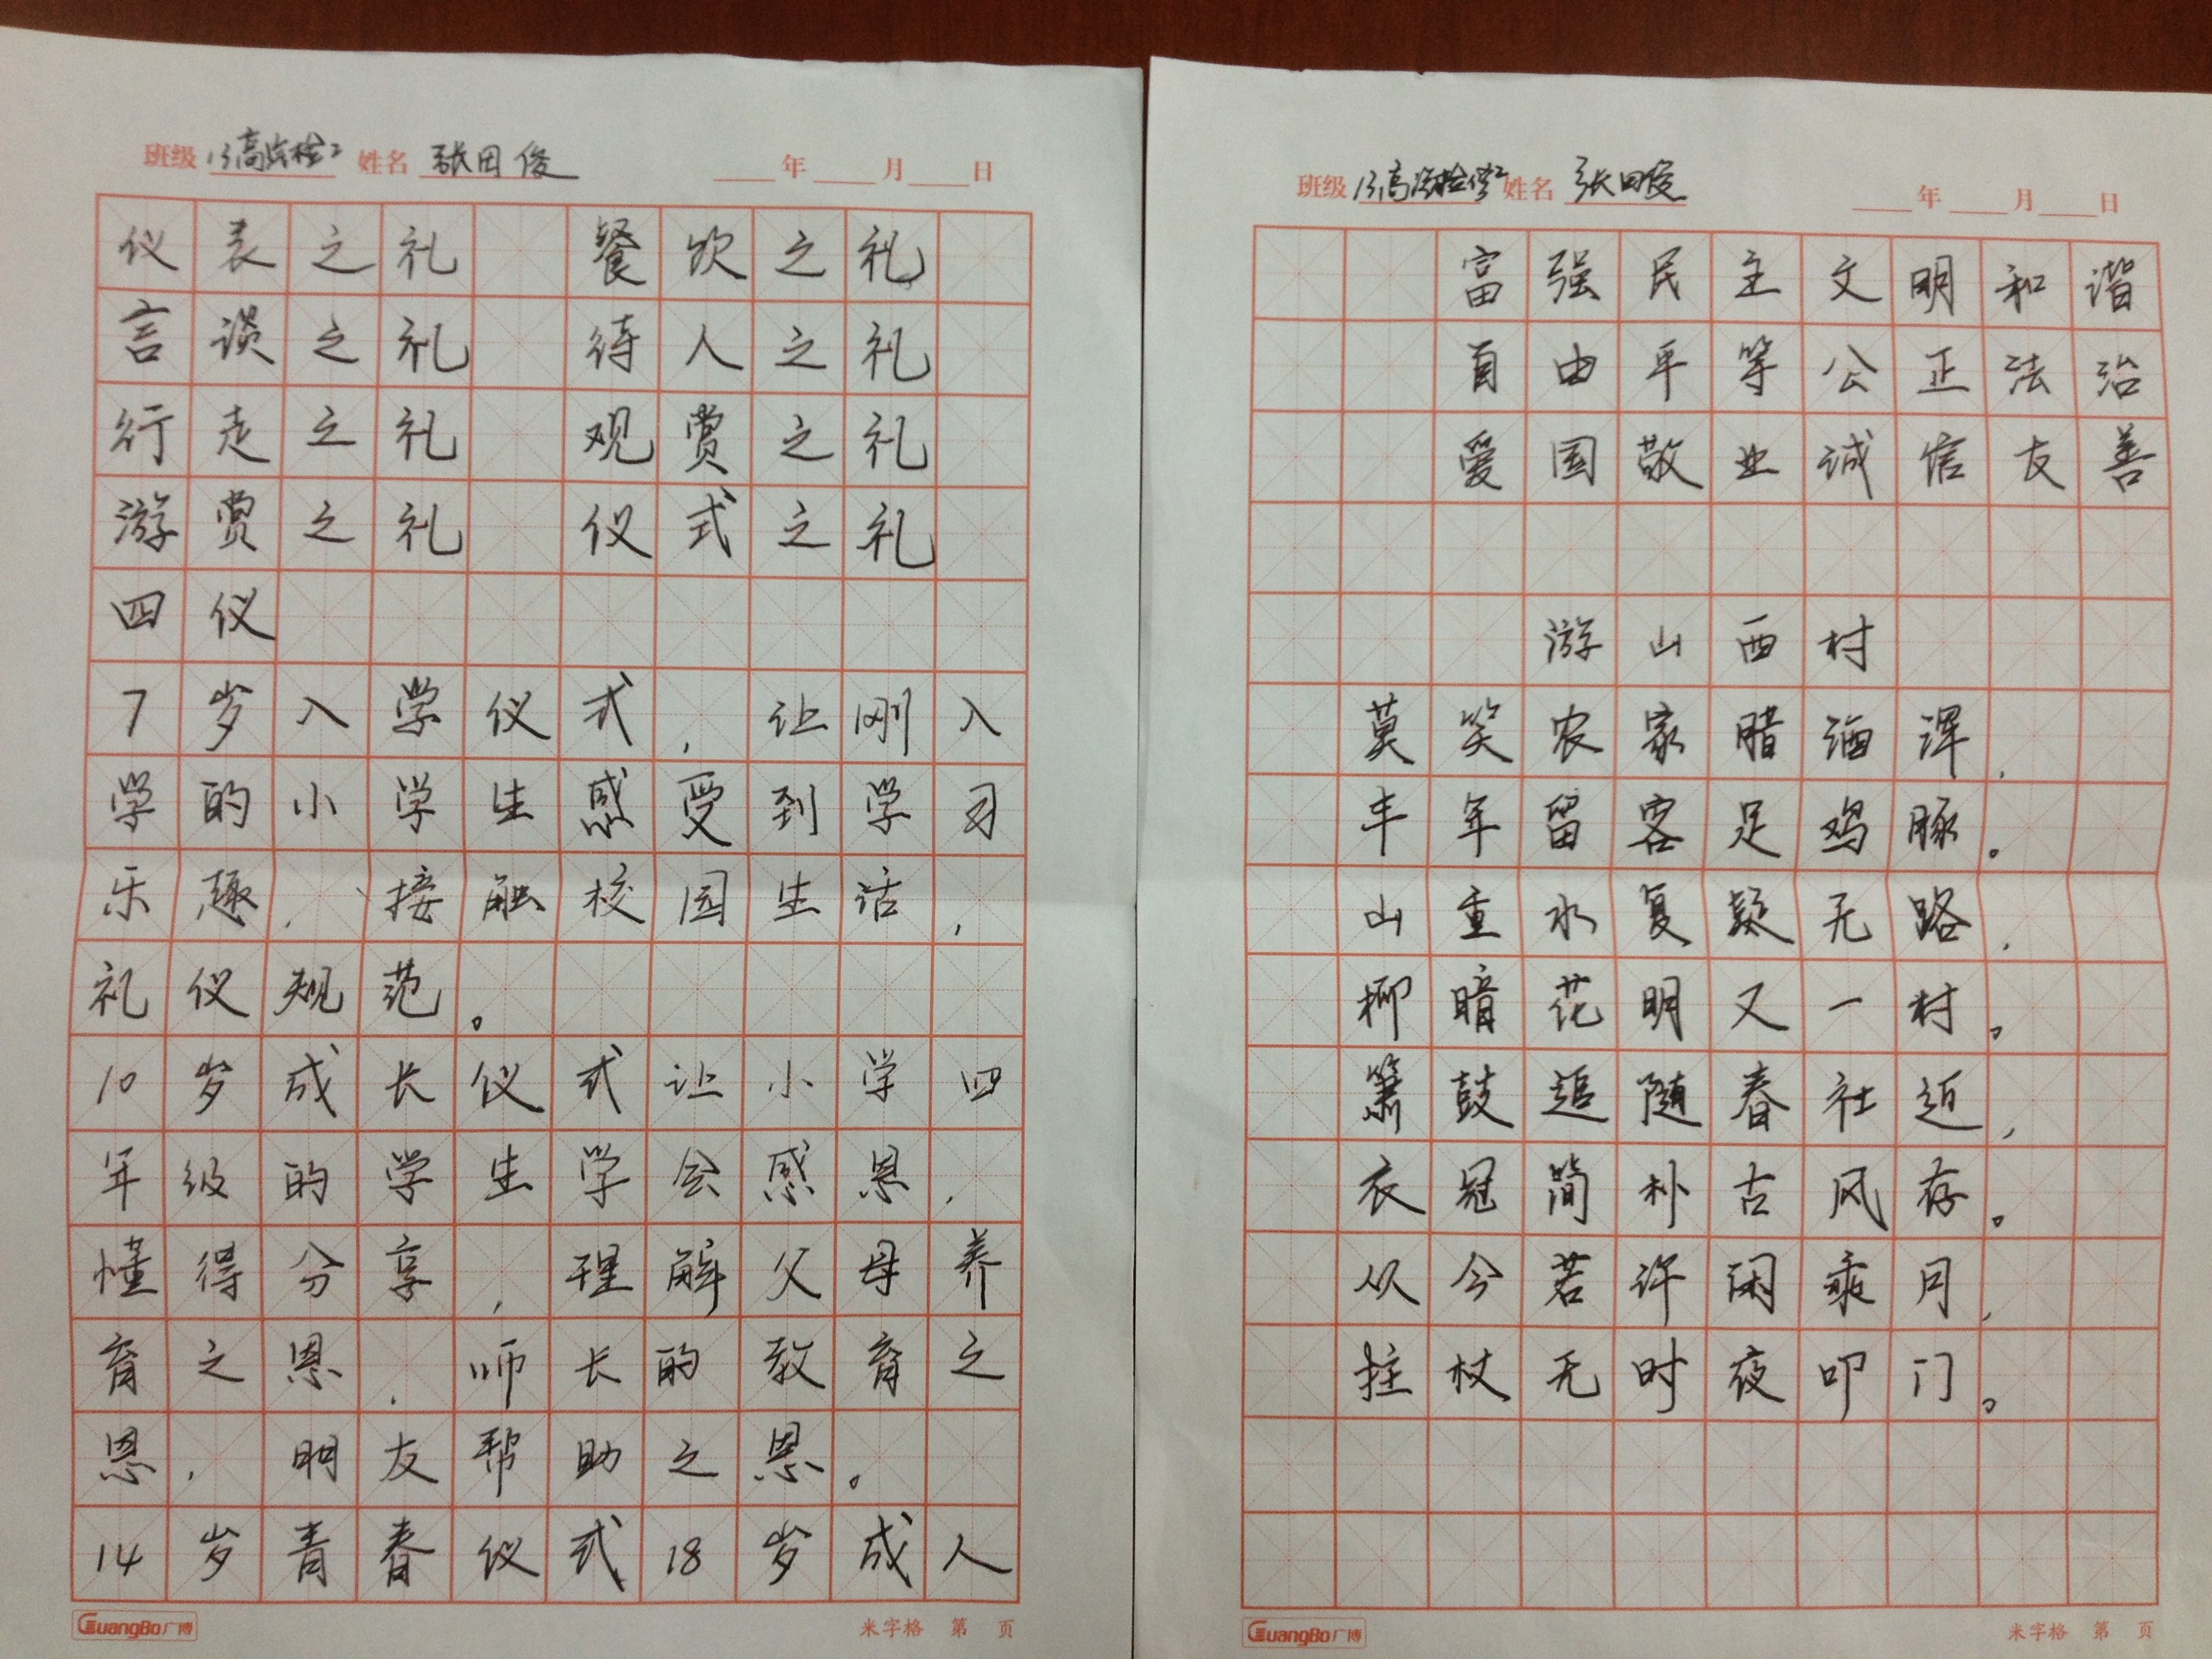 班级 13高汽检2 姓名 张田俊 年 月 日
仪表之礼 餐饮之礼
言谈之礼 待人之礼
行走之礼 观赏之礼
游赏之礼 仪式之礼
四仪
7岁入学仪式,让刚入
学的小学生感受到学习
乐趣,、接触校园生活,
礼仪规范。
10岁成长仪式让小学四
年级的学生学会感恩,
懂得分享,理解父母养
育之恩,师长的教育之
恩,朋友帮助之恩。
14岁青春仪式18岁成人
GuangBo广博 米字格 第 页
班级 13高汽检修2 姓名 张田俊 年 月 日
富强民主文明和谐
自由平等公正法治
爱国敬业诚信友善
游山西村
莫笑农家腊酒浑,
丰年留客足鸡豚。
山重水复疑无路,
柳暗花明又一村。
箫鼓追随春社近,
衣冠简朴古风存。
从今若许闲乘月,
拄杖无时夜叩门。
GuangBo广博 米字格 第 页